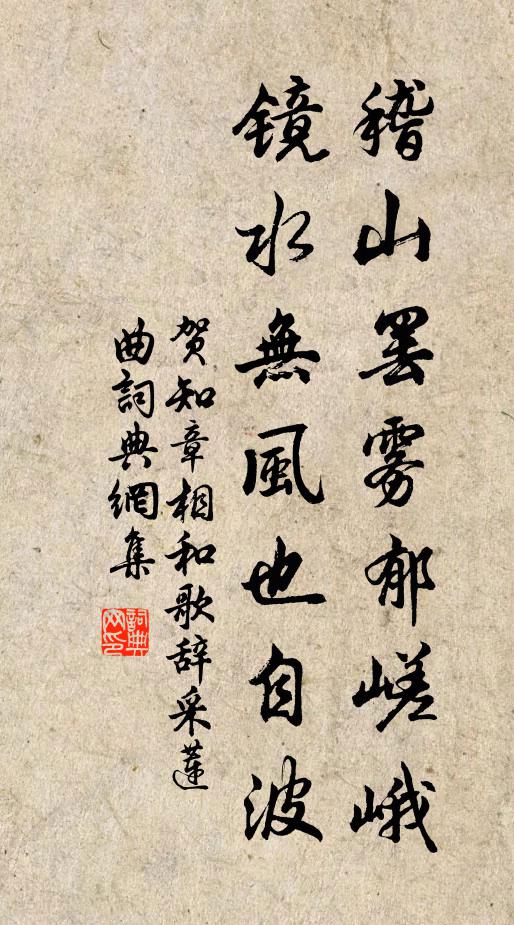 稽山罢雾郁嵯峨
镜水無風也自波
贺知章相和歌辞采蓮
曲詞典網集
詞典
网印